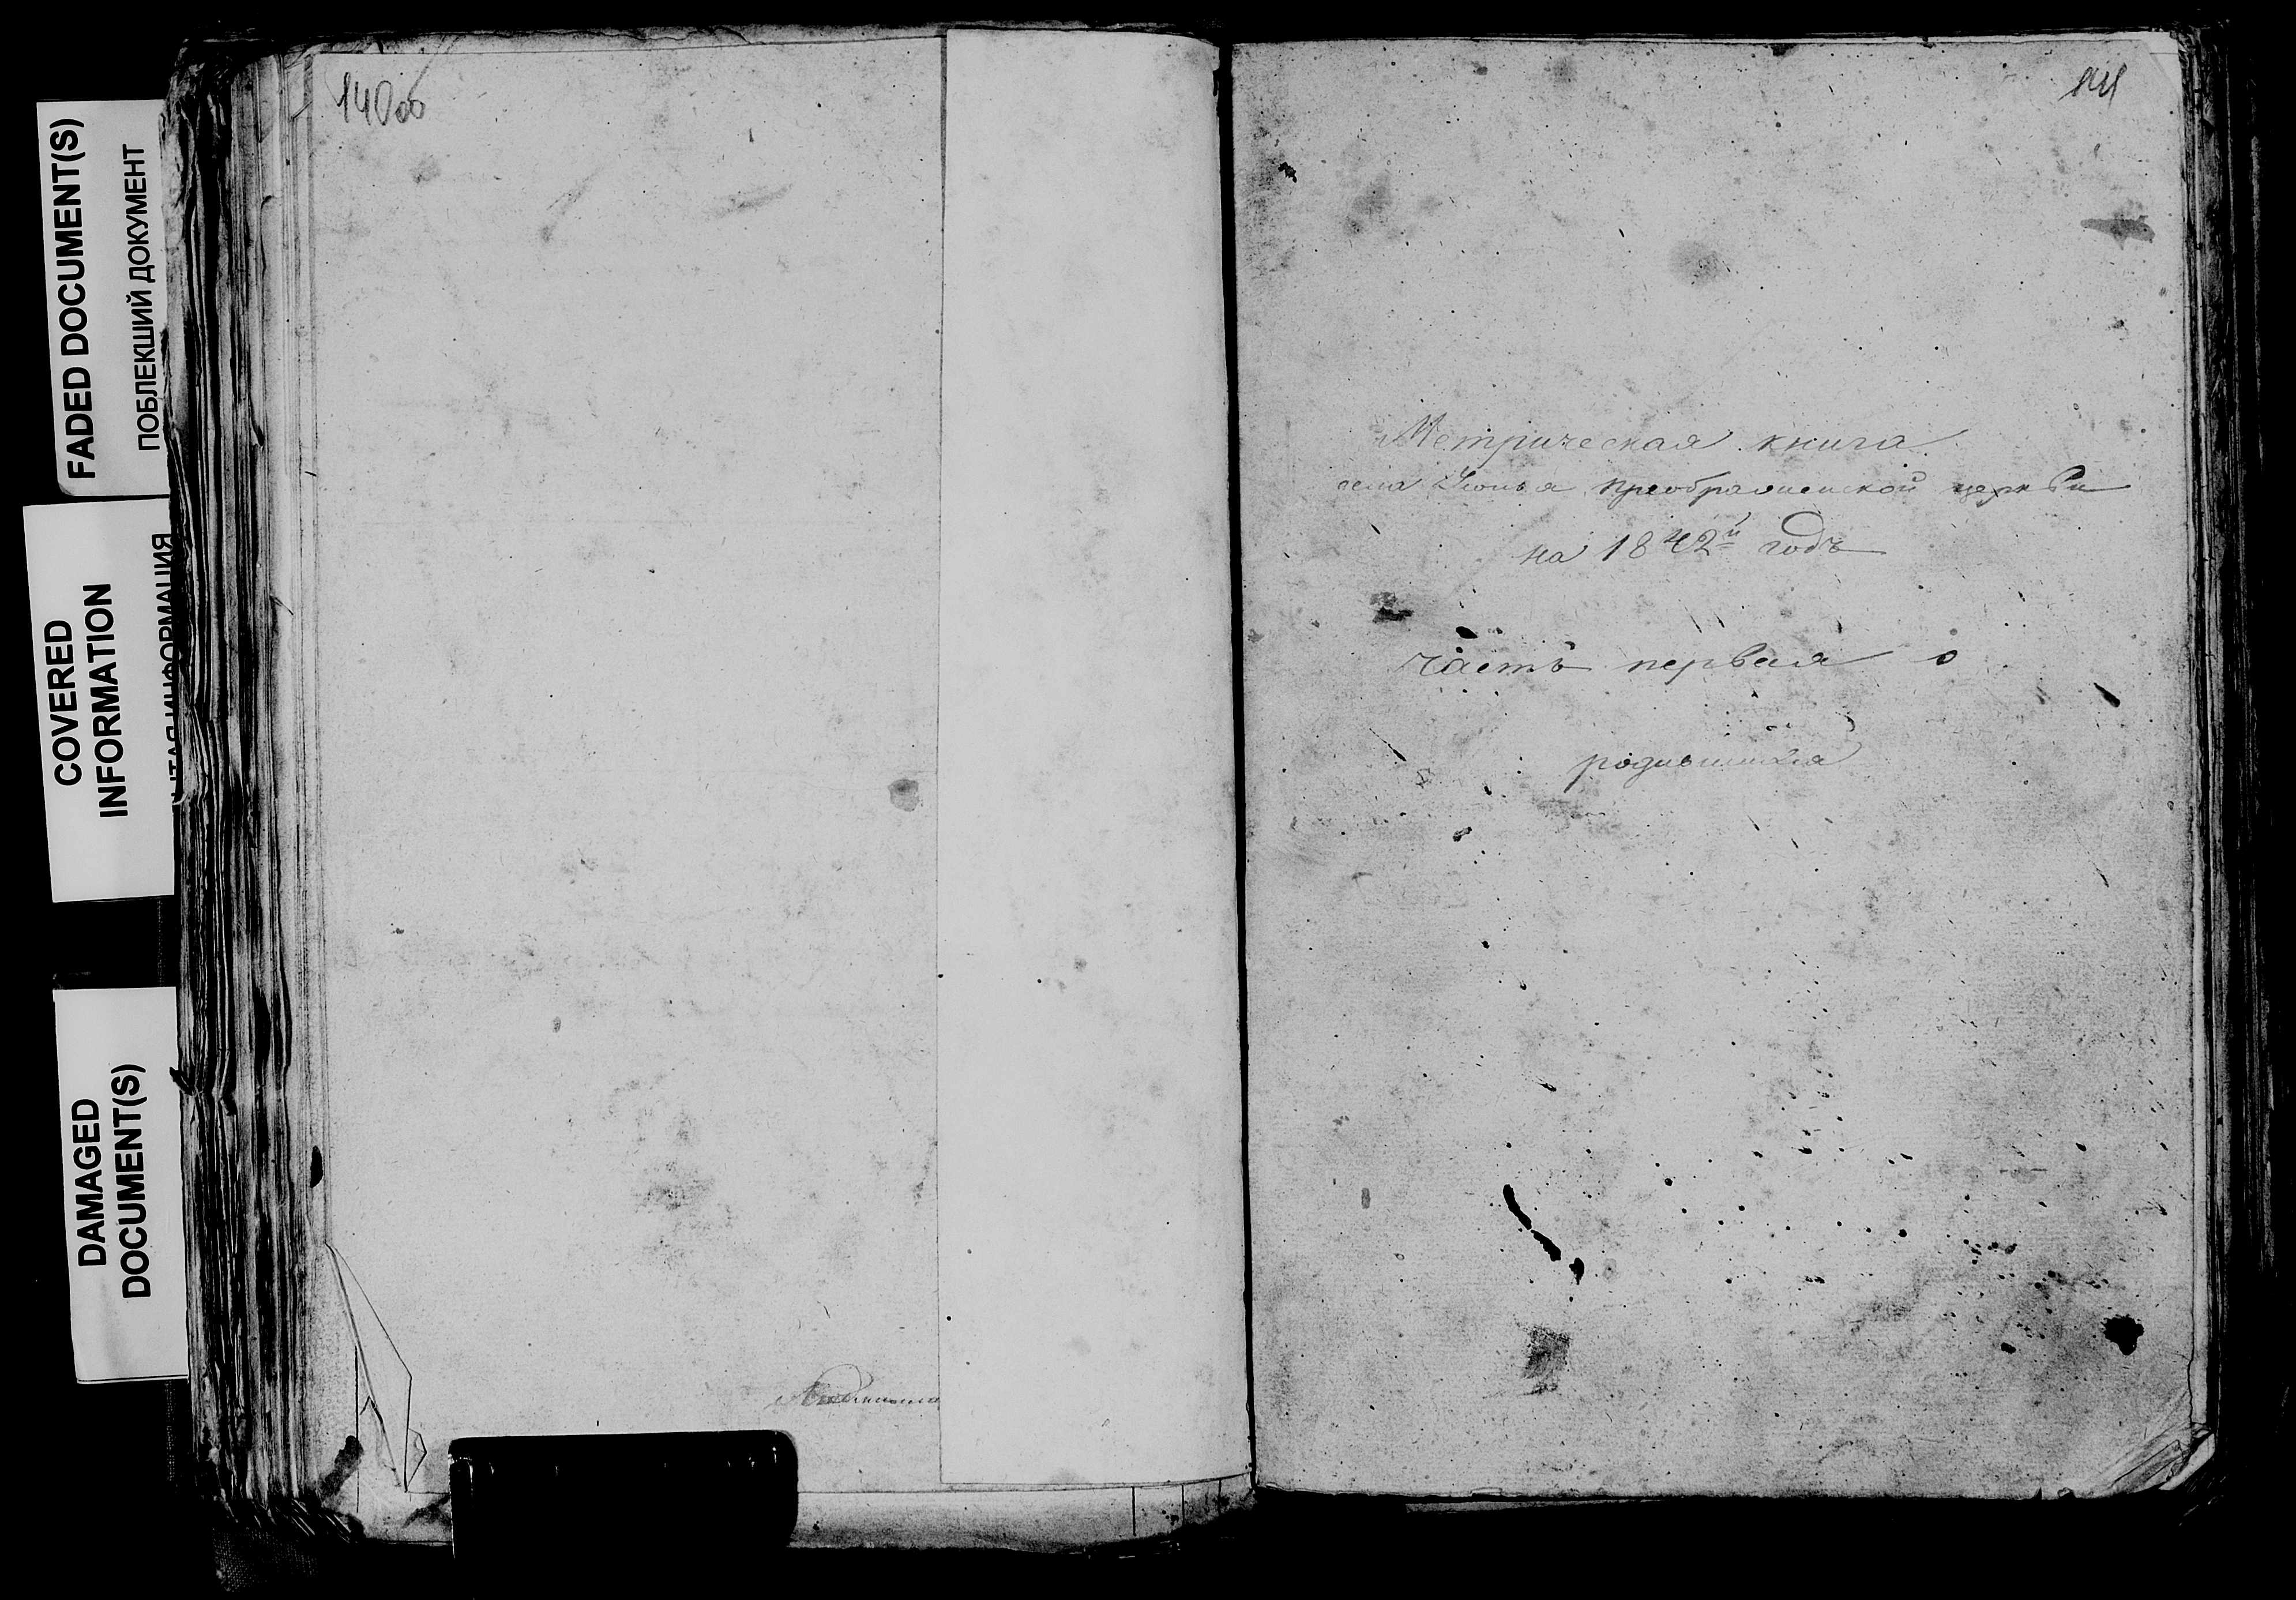 FADED DOCUMENT(S)
ПОБЛЕКШИЙ ДОКУМЕНТ
COVERED
INFORMATION
ИНФОРМАЦИЯ
DAMAGED
DOCUMENT(S)
140об
141
Метрическая книга
села преображенской церкви
на 1842й годъ
часть первая о
родившихся